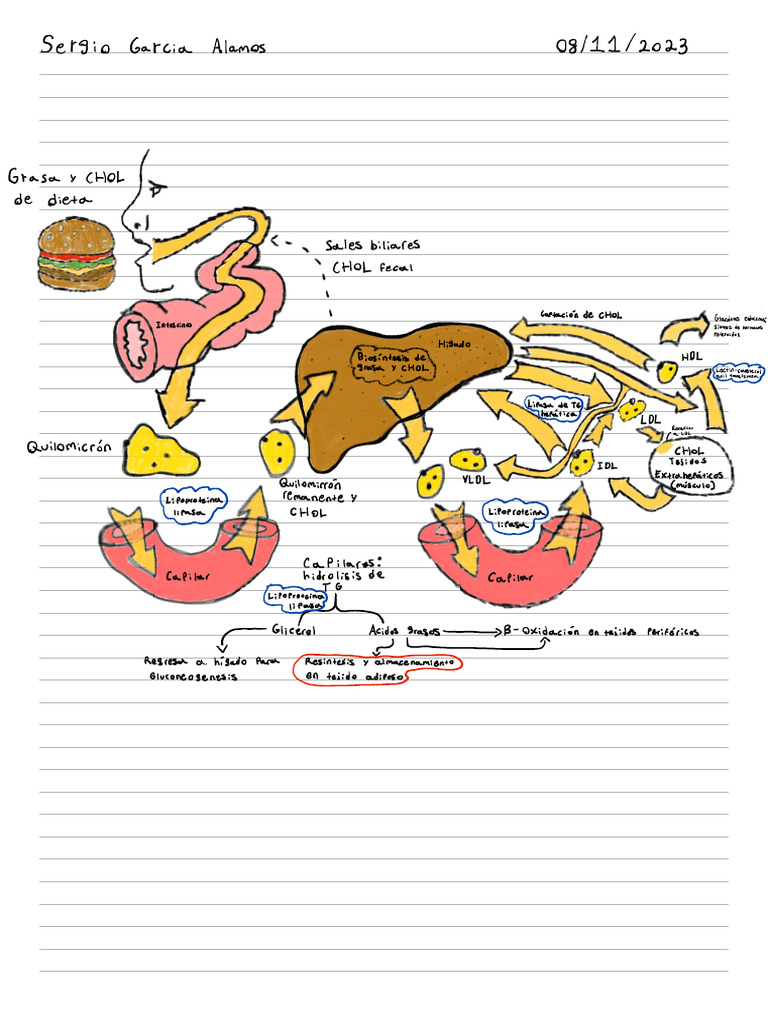 Sergio Garcia Alamos
08/11/2023
Grasa y CHOL
de dieta
Sales biliares
CHOL fecal
Intestino
Captación de CHOL
Hígado
Biosíntesis de
grasa y CHOL
HDL
Lipasa de TG
hepática
LDL
CHOL
Tejidos
Extrahepáticos
(músculo)
Quilomicrón
Quilomicrón
remanente y
CHOL
VLDL
IDL
Lipoproteina
lipasa
Lipoproteina
lipasa
Capilar
Capilar
Capilares:
hidrolisis de
TG
Lipoproteina
lipasa
Glicerol
Acidos grasos
β-Oxidación en tejidos periféricos
Regresa a hígado para
Gluconeogenesis
Resintesis y almacenamiento
en tejido adiposo